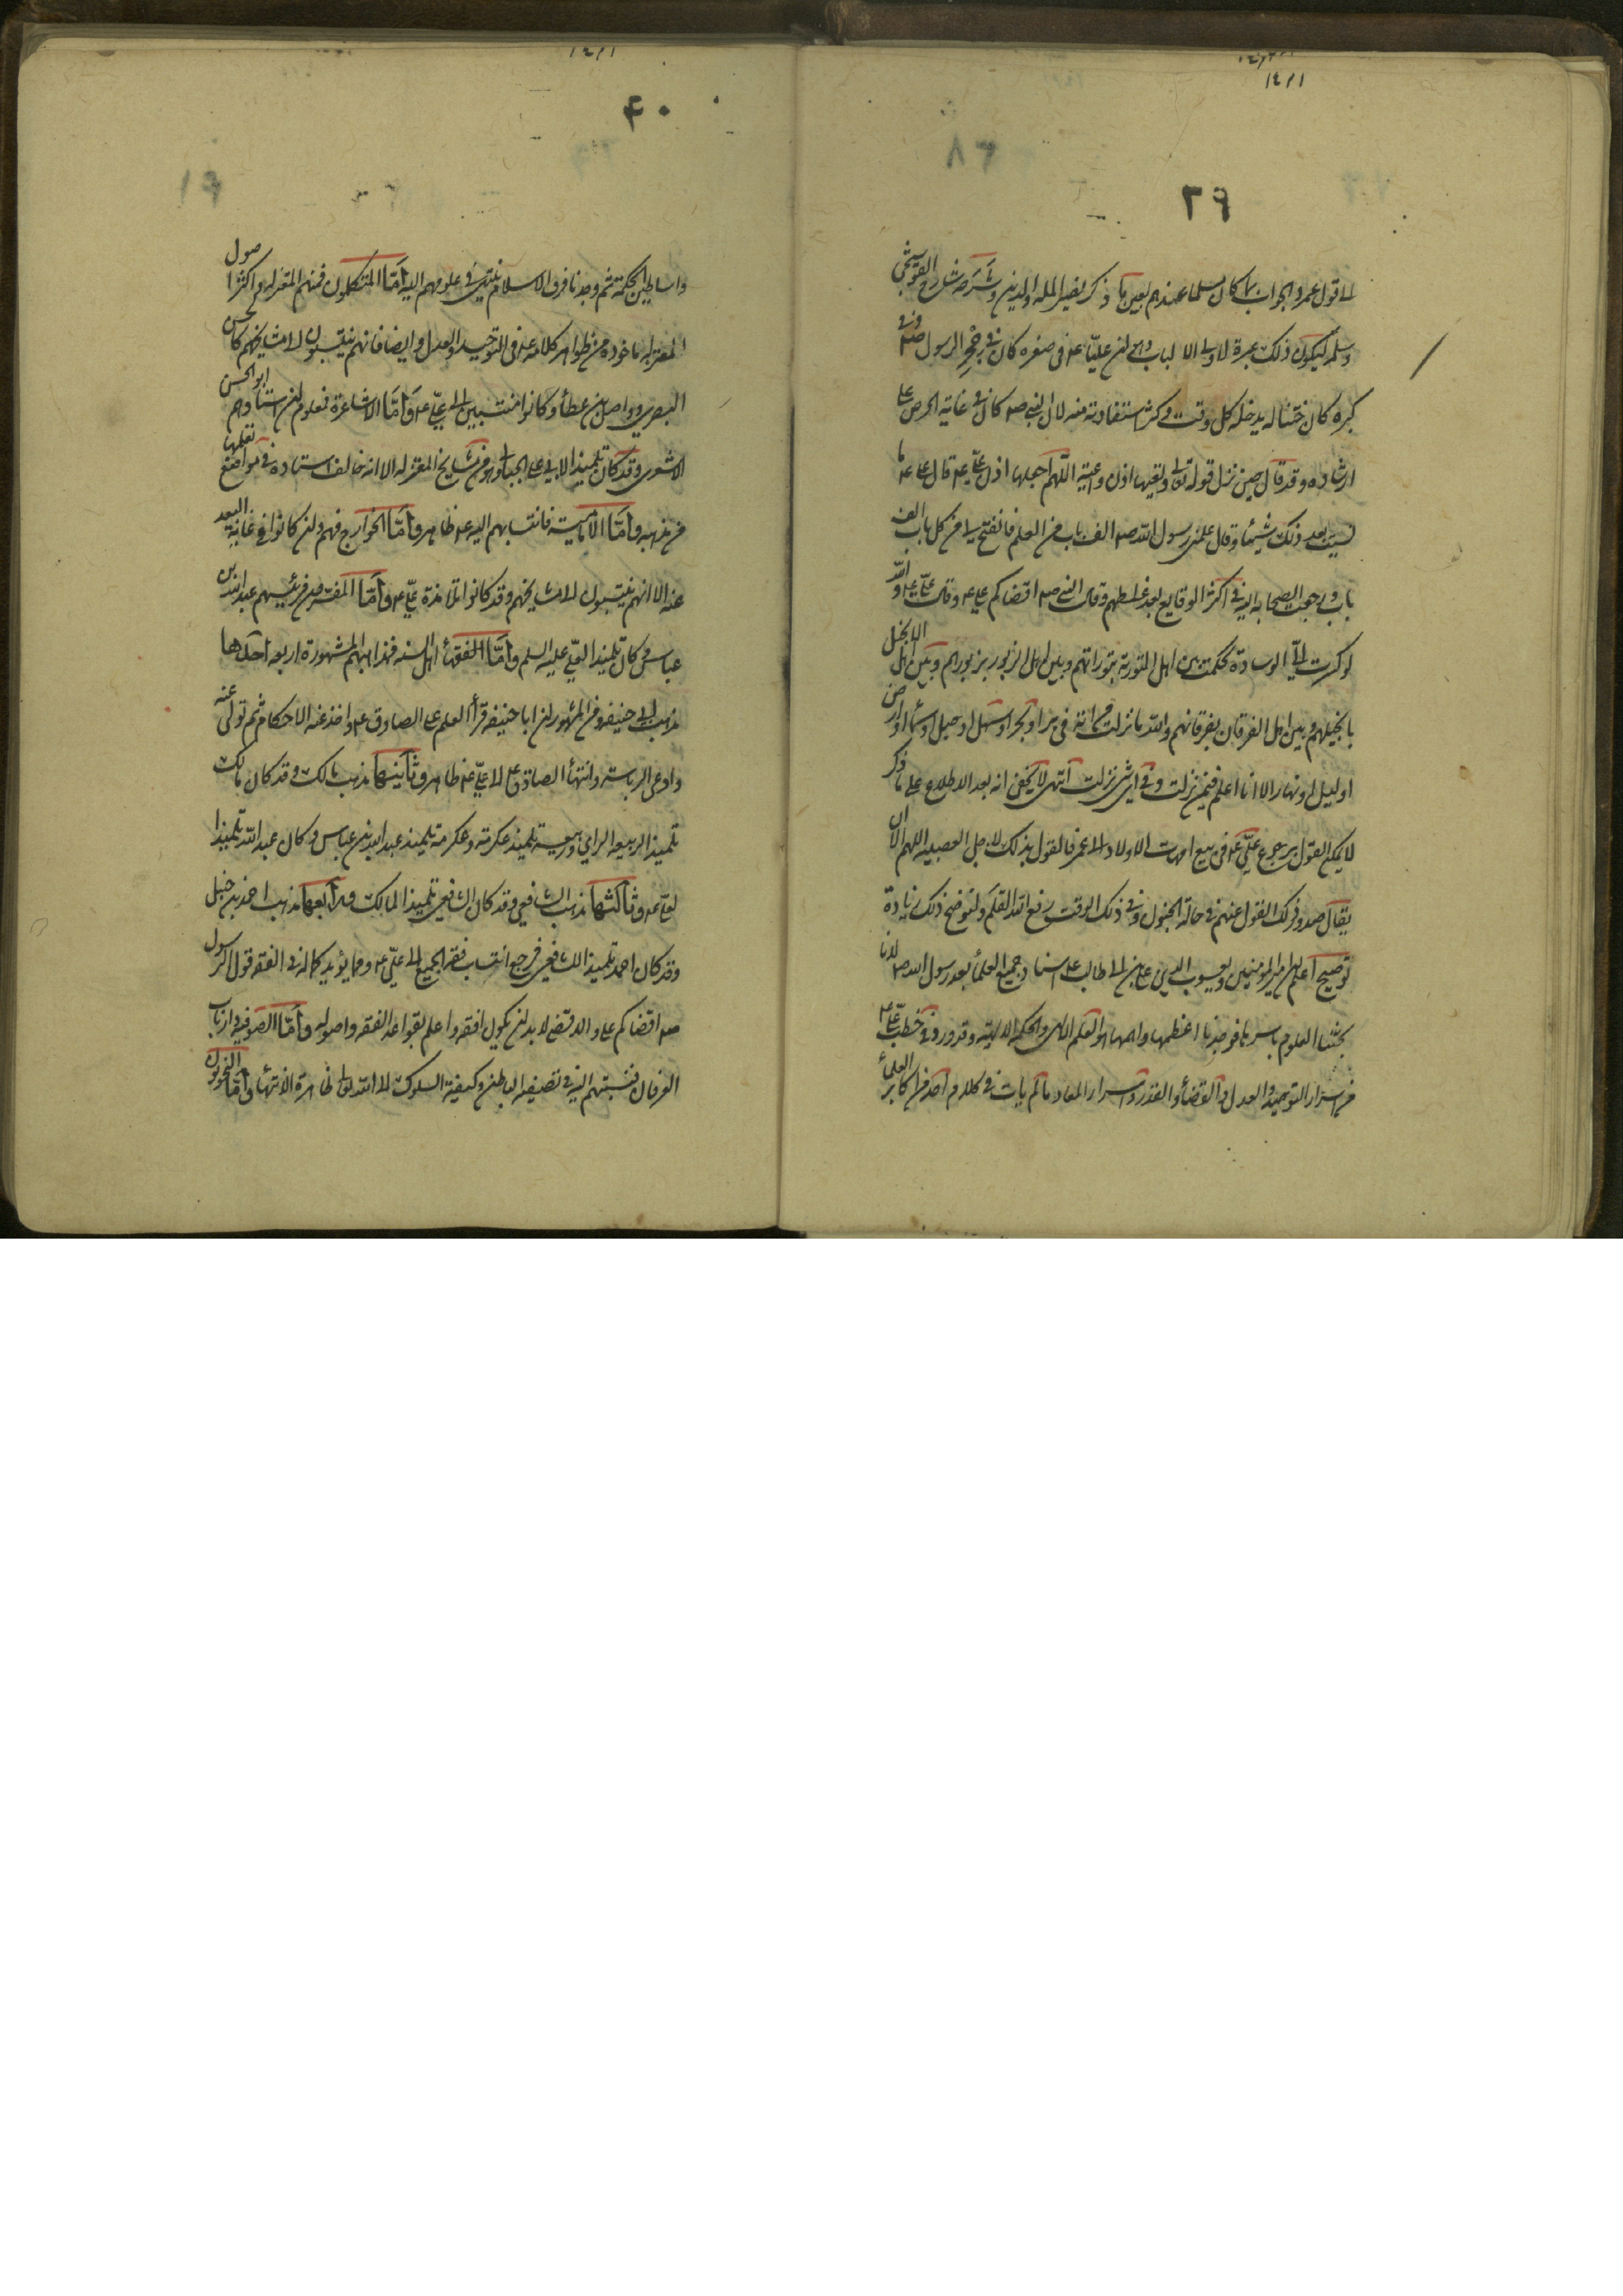 ٣٩
الى قول عمر والجواب بما كان مسلما عندهم بعين ما ذكر نصير الملة والدين وشرحه شارح القوشجي
وسلمه ليكون ذلك عبرة لاولى الالباب وهى ان عليا ع فى صغره كان فى حجر الرسول ص وفى
كبره كان ختنا له يدخله كل وقت وكثر استفادته منه لان النبى ص كان فى غاية الحرص على
ارشاده وقد قال حين نزل قوله تعالى وتعيها اذن واعية اللهم اجعلها اذن على ع قال على ع ما
نسيت بعد ذلك شيئا وقال علمنى رسول الله ص الف باب من العلم فانفتح لى من كل باب الف
باب ورجعت الصحابة اليه فى اكثر الوقايع بعد غلطهم وقال النبى ص اقضاكم على ع وقال على ع والله
لو كسرت لى الوسادة لحكمت بين اهل التورية بتوراتهم وبين اهل الزبور بزبورهم وبين اهل الانجيل
بانجيلهم وبين اهل الفرقان بفرقانهم والله ما نزلت من اية فى بر او بحر او سهل او جبل او سماء او ارض
او ليل او نهار الا انا اعلم فيمن نزلت وفى اى شئ نزلت انتهى لا يخفى انه بعد الاطلاع على ما ذكر
لا يمكن القول برجوع على ع فى بيع امهات الاولاد الى عمر فالقول بذلك لاجل العصبية اللهم الا ان
يقال صدور ذلك القول عنهم فى حالة الجنون وفى ذلك الوقت رفع الله القلم ولنوضح ذلك زيادة
توضيح اعلم ان امير المؤمنين ويعسوب الدين على بن ابى طالب ع استاد جميع العلماء بعد رسول الله ص لانا
بحثنا العلوم باسرها فوجدنا اعظمها واهمها هو العلم الالهى والحكمة الالهية وقد ورد فى خطب على ع
من اسرار التوحيد والعدل والقضاء والقدر واسرار المعاد ما لم يات فى كلام احد من اكابر العلماء
٤٠
واساطين الحكمة ثم وجدنا فرق الاسلام ينتهى فى علومهم اليه اما المتكلمون فمنهم المعتزلة واكثر اصول
المعتزلة ماخوذة من ظواهر كلامه ع فى التوحيد والعدل وايضا فانهم ينتسبون الى مشايخهم كالحسن
البصرى وواصل بن عطاء وكانوا منتسبين الى على ع واما الاشاعرة فمعلوم ان استادهم ابو الحسن
الاشعرى وقد كان تلميذا لابى على الجبائى وهو من مشايخ المعتزلة الا انه خالف استاده فى مواضع نقلها
من مذهبه واما الامامية فانتسابهم اليه ع ظاهر واما الخوارج فهم وان كانوا فى غاية البعد
عنه الا انهم ينتسبون الى مشايخهم وقد كانوا تلامذة على ع واما المفسرون فرئيسهم عبد الله بن
عباس وكان تلميذا لعلى عليه السلم واما الفقهاء اهل السنة فمذاهبهم المشهورة اربعة احدها
مذهب ابى حنيفة ومن المشهور ان ابا حنيفة قرأ العلم على الصادق ع واخذ عنه الاحكام ثم تولى عنه
وادعى الرياسة وانتهاء الصادق ع الى على ع ظاهر وثانيها مذهب مالك وقد كان مالك
تلميذ الربيعة الراى وربيعة تلميذ عكرمة وعكرمة تلميذ عبد الله بن عباس وكان عبد الله تلميذا
لعلى ع وثالثها مذهب الشافعى وقد كان الشافعى تلميذ المالك ورابعها مذهب احمد بن حنبل
وقد كان احمد تلميذ الشافعى فرجع انتساب فقه الجميع الى على ع ومما يؤيد كماله فى الفقه قول الرسول
ص اقضاكم على والاقضى لابد ان يكون افقه واعلم بقواعد الفقه واصوله واما الصوفية وارباب
العرفان فنسبتهم اليه فى تصفية الباطن وكيفية السلوك الى الله تعالى ظاهرة الانتهاء واما النحويون